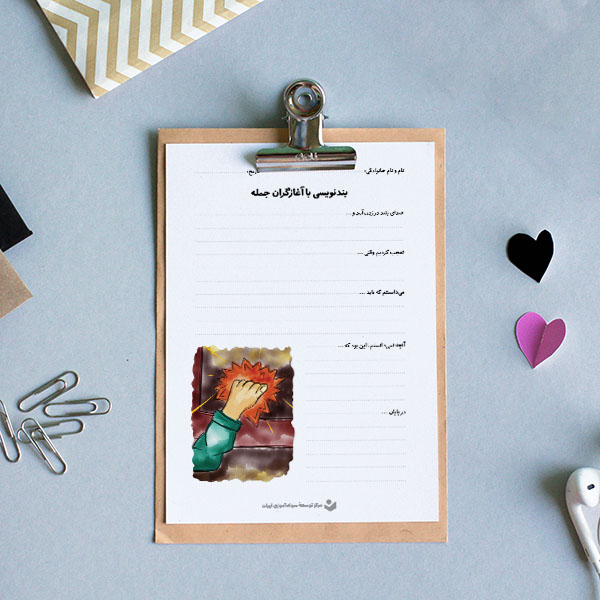 نام و نام خانوادگی:
تاریخ:
بندنویسی با آغازگران جمله
صدای بلند در زدن آمد و ...
تعجب کردیم وقتی ...
می‌دانستم که باید ...
آنچه نمی‌دانستم، این بود که ...
در پایان، ...
مرکز توسعهٔ سوادآموزی ایرانک